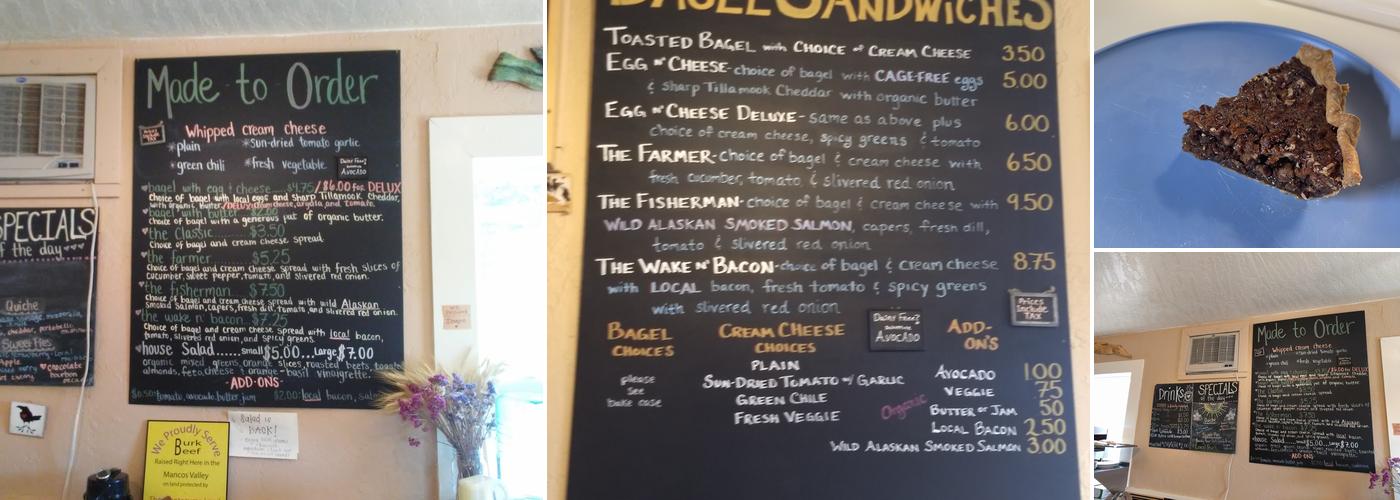 Made to Order
Whipped cream cheese
*plain
*sun-dried tomato garlic
*green chili
*fresh vegetable
Dairy Free?
AVOCADO
bagel with egg & cheese.....$4.75/$6.00 for DELUX
Choice of bagel with local eggs and sharp Tillamook Cheddar,
with organic butter/
bagel with butter $2.00
Choice of bagel with a generous pat of organic butter.
the Classic $3.50
Choice of bagel and cream cheese spread.
the farmer $5.25
Choice of bagel and cream cheese spread with fresh slices of
cucumber, sweet pepper, tomato, and slivered red onion.
the fisherman $7.50
Choice of bagel and cream cheese spread with wild Alaskan
smoked salmon, capers, fresh dill, tomato, and slivered red onion.
the wake n' bacon $7.25
Choice of bagel and cream cheese spread with local bacon,
tomato, slivered red onion, and spicy greens.
house Salad......small $5.00...Large $7.00
organic mixed greens, orange slices, roasted beets, toasted
almonds, feta cheese & orange basil vinaigrette.
-ADD-ONS-
$0.50: tomato, avocado, butter, jam $2.00: local bacon,
SPECIALS
of the day
Quiche
cheddar, portabello
Sweet Pies
chocolate
bourbon
Salad is
BACK!
We Proudly Serve
Burk
Beef
Raised Right Here in the
Mancos Valley
on land protected by
BAGEL SANDWICHES
TOASTED BAGEL with CHOICE of CREAM CHEESE 3.50
EGG N' CHEESE-choice of bagel with CAGE-FREE eggs 5.00
& sharp Tillamook Cheddar with organic butter
EGG N' CHEESE DELUXE- same as above plus 6.00
choice of cream cheese, spicy greens & tomato
THE FARMER-choice of bagel & cream cheese with 6.50
fresh cucumber, tomato, & slivered red onion
THE FISHERMAN-choice of bagel & cream cheese with 9.50
WILD ALASKAN SMOKED SALMON, capers, fresh dill,
tomato & slivered red onion
THE WAKE N' BACON-choice of bagel & cream cheese 8.75
with LOCAL bacon, fresh tomato & spicy greens
with slivered red onion
Prices
Include
TAX
BAGEL
CHOICES
please
see
bake case
CREAM CHEESE
CHOICES
PLAIN
SUN-DRIED TOMATO w/ GARLIC
GREEN CHILE
FRESH VEGGIE
Dairy Free?
AVOCADO
ADD-
ON'S
AVOCADO 1.00
VEGGIE .75
Organic
BUTTER or JAM 50
LOCAL BACON 2.50
WILD ALASKAN SMOKED SALMON 3.00
Drinks
SPECIALS
of the day
Made to Order
Whipped cream cheese
house Salad......small $5.00...Large $7.00
ADD ONS